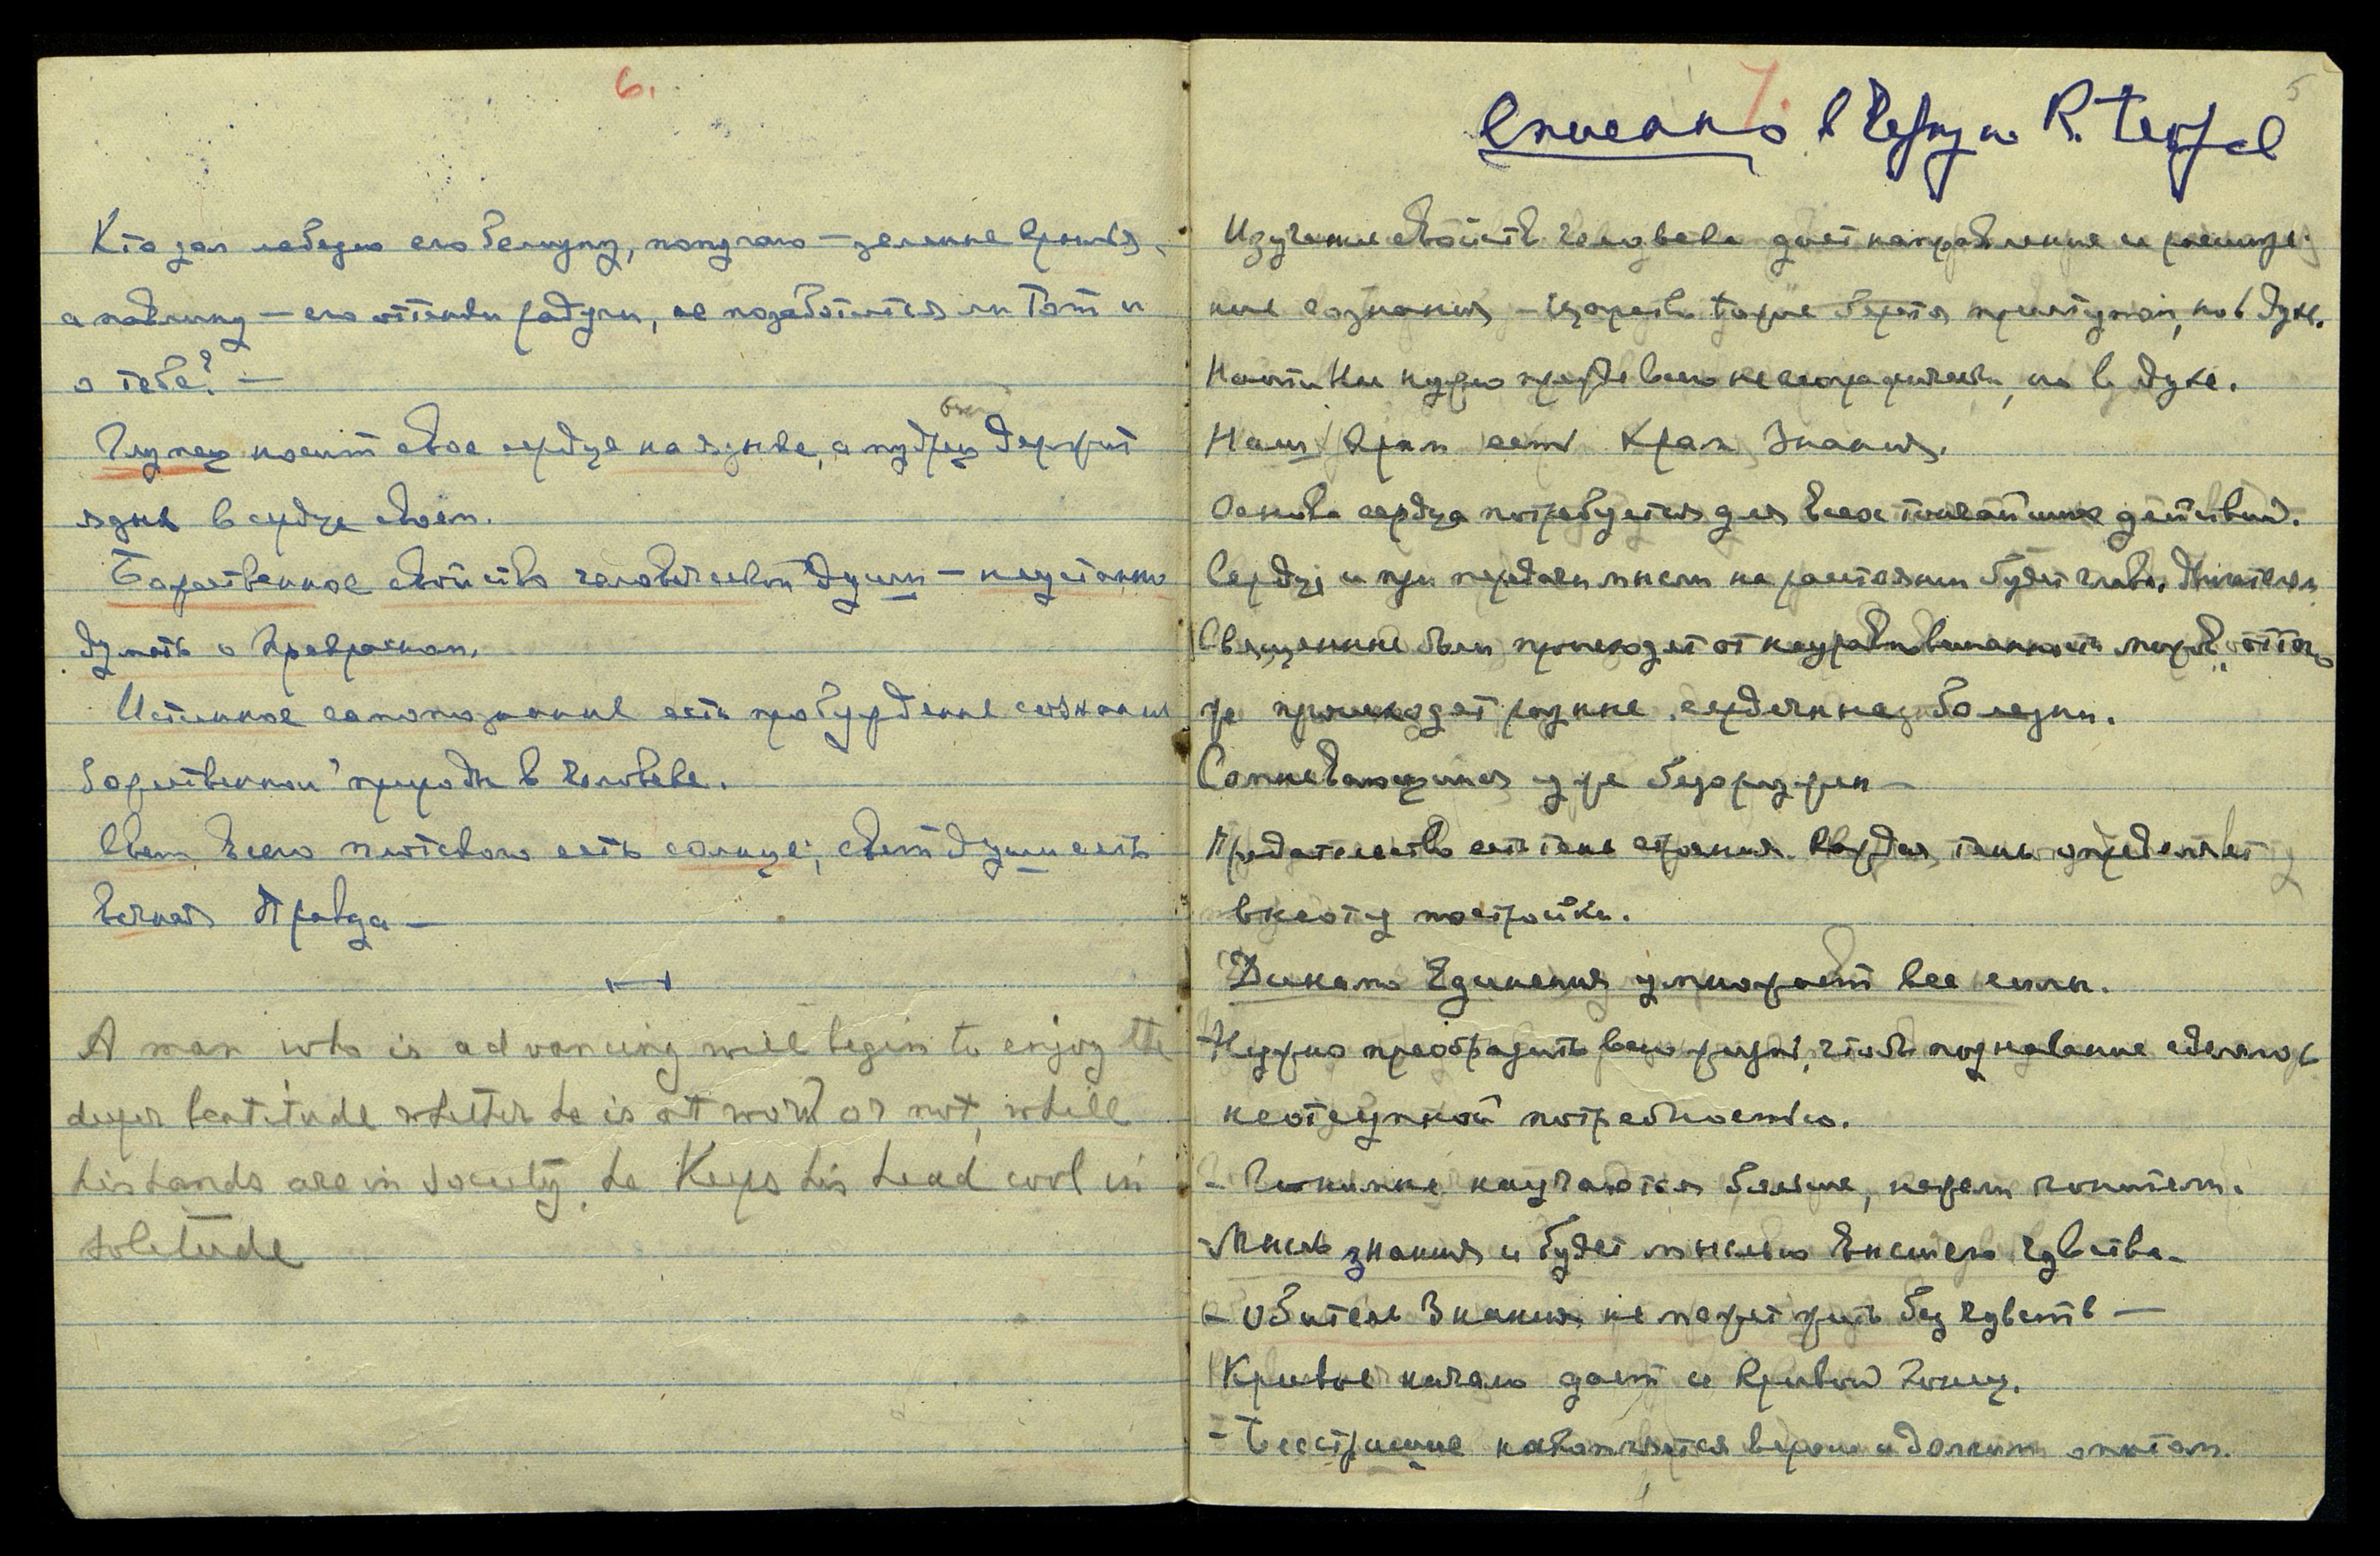 6.
Кто дал лебедю его белизну, попугаю — зеленые крылья,
а павлину — его оттенки радуги, не позаботится ли Тот и
о тебе? —
Глупец носит свое сердце на языке, а мудрец держит
язык в сердце своем.
Божественное свойство человеческой души — неустанно
думать о Прекрасном.
Истинное самопознание есть пробуждение сознания
божественной природы в человеке.
Свет всего плотского есть солнце; свет души есть
вечная Правда —
A man who is advancing will begin to enjoy the
deeper beatitude whether he is at work or not, while
his hands are in society, he Keeps his head cool in
solitude
7.
5
Списано в
Изучение свойств человека дает направление и расшире-
ние сознания — царство также берется приступом, но в духе.
Найти Нас нужно прежде всего не географически, но в духе.
Наш Храм есть Храм Знания.
Основа сердца потребуется для всех тончайших действий.
Сердце и при передачи мысли на расстоянии будет главн. двигателем
Священные боли происходят от неуравновешенности миров, от того
же происходят разные сердечные болезни.
Сомневающийся уже безоружен —
Предательство есть тень строения. Каждая тень определяет
высоту постройки.
Динамо Единения умножает все силы.
— Нужно преобразить всю жизнь, чтоб познавание сделалось
неотступной потребностью.
— Гонимые научаются больше, нежели гонители.
— Мысль знания и будет мыслью высшего чувства.
— Обитель Знания не может жить без чувств —
Кривое начало дает и кривой конец.
— Бесстрашие накопляется верою и долгим опытом.